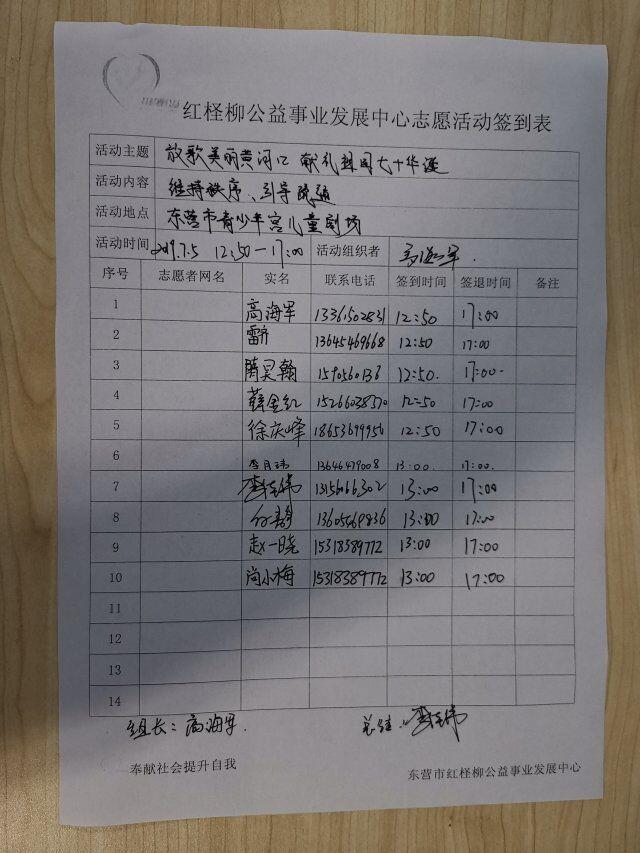 红柽柳公益事业发展中心志愿活动签到表
活动主题 放歌美丽黄河口 献礼祖国七十华诞
活动内容 维持秩序、引导疏通
活动地点 东营市青少年宫儿童剧场
活动时间 2019.7.5 12:50—17:00 活动组织者 高海军
序号 志愿者网名 实名 联系电话 签到时间 签退时间 备注
1 高海军 13361502831 12:50 17:00
2 雷齐 13645469668 12:50 17:00
3 隋昊翰 1590560136 12:50. 17:00.
4 薛金红 15266038570 12:50 17:00
5 徐庆峰 18653699956 12:50 17:00
6 李月玮 13646479008 13:00. 17:00.
7 13:00 17:00
8 13:00 17:00
9 赵一晓 15318389772 13:00 17:00
10 尚小梅 15318389772 13:00 17:00
11
12
13
14
组长：高海军
奉献社会提升自我 东营市红柽柳公益事业发展中心